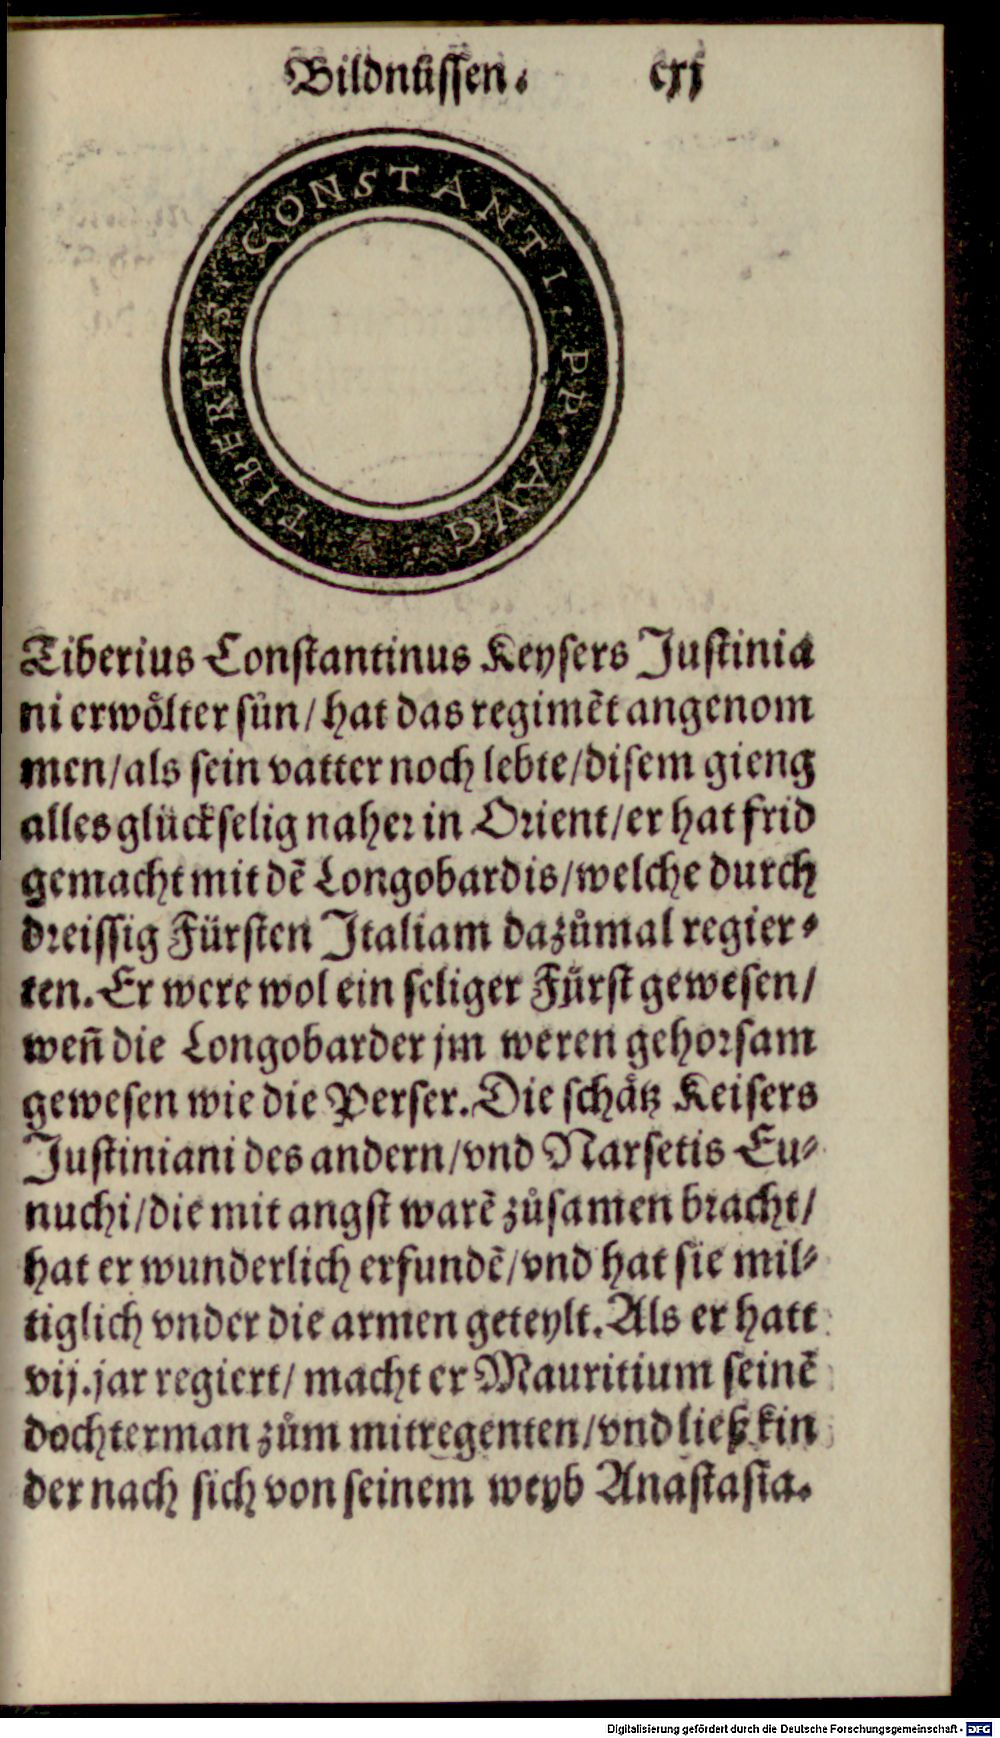 Bildnüssen. cxj
TIBERIVS CONSTANTI. PP. AVG
Tiberius Constantinus Keysers Justinia
ni erwoͤlter sün/ hat das regimēt angenom
men/als sein vatter noch lebte/disem gieng
alles glückselig naher in Orient/er hat frid
gemacht mit dē Longobardis/welche durch
dreissig Fürsten Italiam dazůmal regier⸗
ten. Er were wol ein seliger Fürst gewesen/
weñ die Longobarder jm weren gehorsam
gewesen wie die Perser. Die schaͤtz Keisers
Justiniani des andern/vnd Narsetis Eu⸗
nuchi/die mit angst warē zůsamen bracht/
hat er wunderlich erfundē/vnd hat sie mil⸗
tiglich vnder die armen geteylt. Als er hatt
vij. jar regiert/ macht er Mauritium seinē
dochterman zům mitregenten/vnd ließ kin
der nach sich von seinem weyb Anastasia.
Digitalisierung gefördert durch die Deutsche Forschungsgemeinschaft - DFG